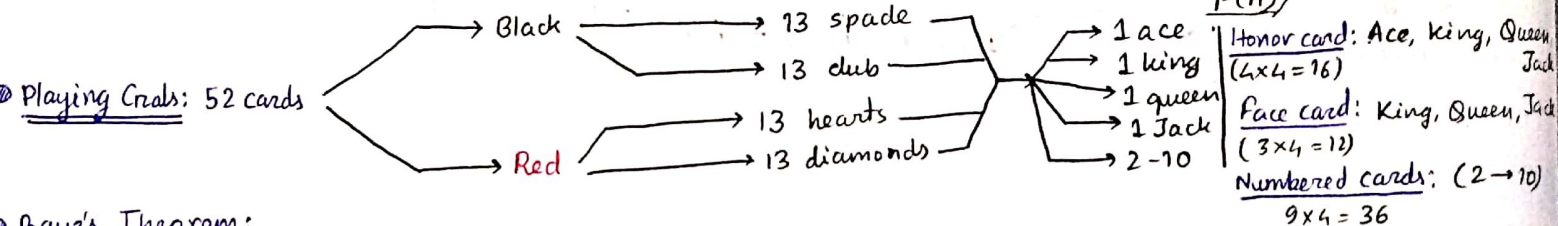 Playing Crads: 52 cards
Black
Red
13 spade
13 club
13 hearts
13 diamonds
1 ace
1 king
1 queen
1 Jack
2-10
Honor card: Ace, King, Queen,
Jack
(4x4=16)
Face card: King, Queen, Jack
(3x4=12)
Numbered cards: (2→10)
9x4=36
Theorem: